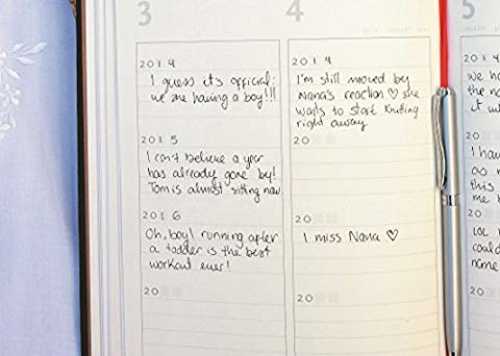 3
2014
I guess it's official:
we are having a boy!!!
2015
I can't believe a year
has already gone by!
Tom is almost sitting now
2016
Oh, boy! running after
a toddler is the best
workout ever!
20
4
2014
I'm still moved by
Nana's reaction ♡ she
wants to start knitting
right away
20
20
I miss Nana ♡
20
5
2014
we ha
the no
it w
20
I hav
as n
this
me
20
LOL
could
name
20